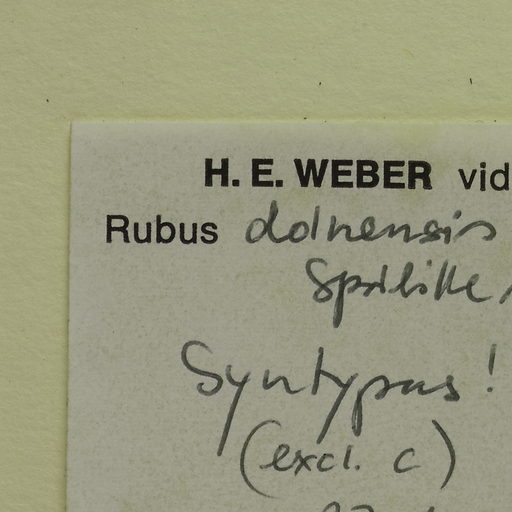 H. E. WEBER vid
Rubus dolnensis
Spribille
Syntypus!
(excl. c)